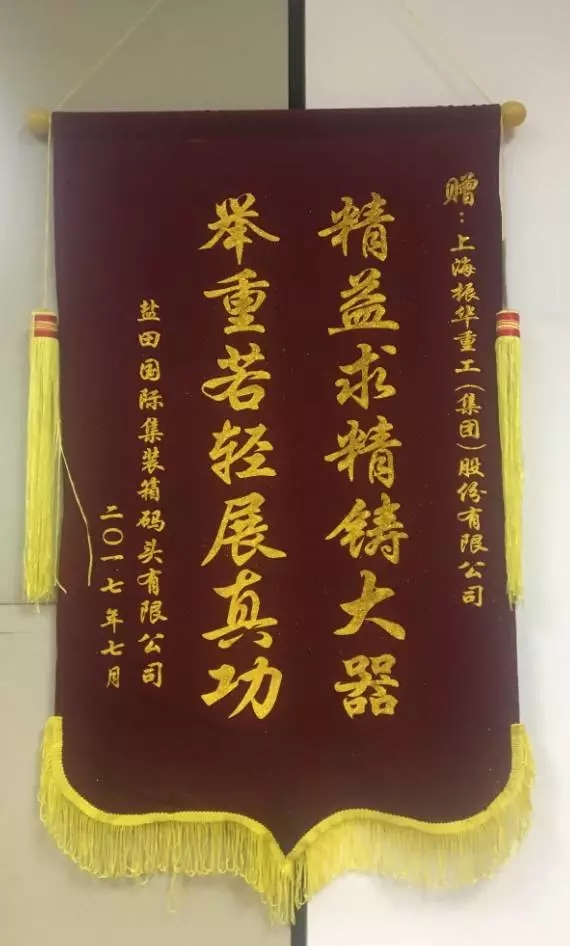 赠：上海振华重工（集团）股份有限公司
精益求精铸大器
举重若轻展真功
盐田国际集装箱码头有限公司
二〇一七年七月